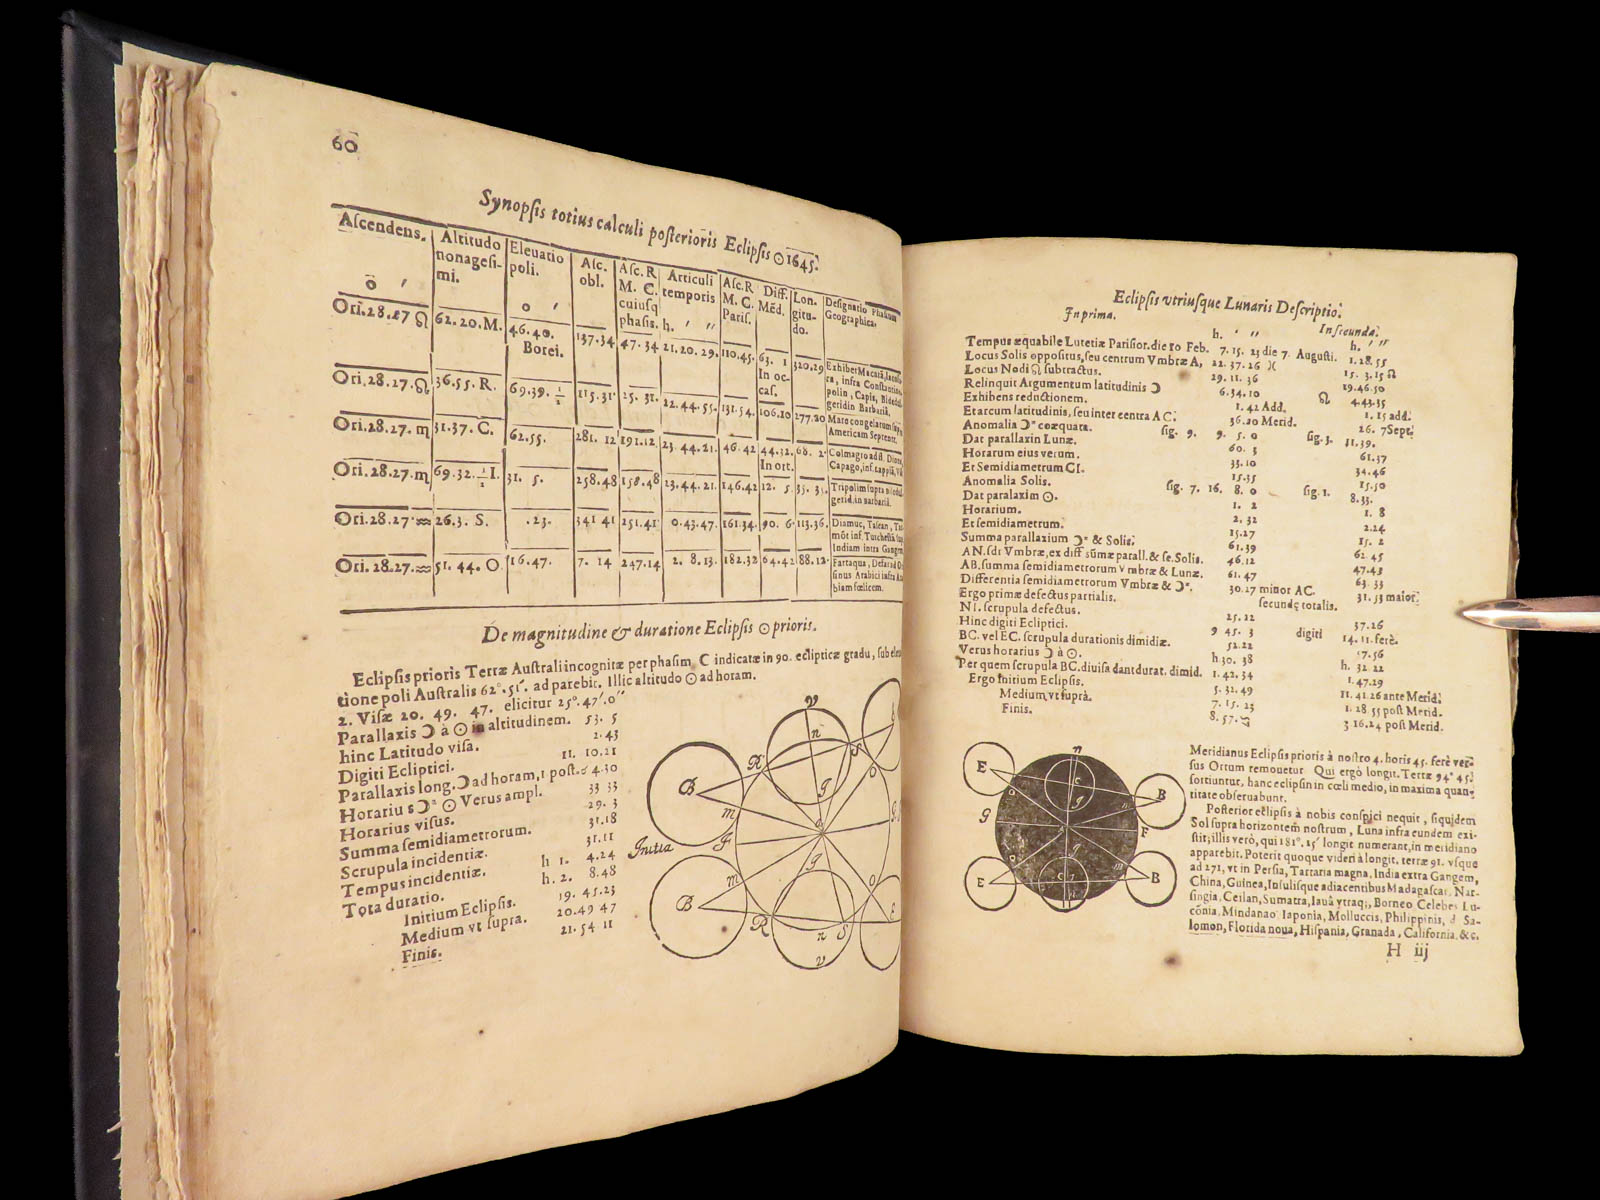 60
Synopsis totius calculi posterioris Eclipsis ☉ 1645.
Ascendens. Altitudo nonagesimi. Eleuatio poli. Asc. obl. Asc. R M. C. cuiusq phasis. Articuli temporis Asc. R M. C. Paris. Diff. Mēd. Longitudo. Designatio Phasium Geographica.
Ori. 28. 27 ♌ 62. 20. M. 46. 40. Borei. 137. 34 47. 34 21. 20. 29. 110. 45. 63. 1 In occas. 320. 29
Ori. 28. 27. ♌ 36. 55. R. 69. 39. ½ 115. 31 25. 31. 22. 44. 55. 131. 54. 106. 20 277. 20 Mare congelatum supra Americam Septentr.
Ori. 28. 27. ♏ 31. 37. C. 62. 55. 281. 12 191. 12. 23. 44. 21. 46. 42 44. 32. In ort.
Ori. 28. 27. ♏ 69. 32. ½ I. 31. 5. 258. 48 158. 48 23. 44. 21. 146. 42 12. 5.
Ori. 28. 27 ♒ 26. 3. S. . 23. 341 41 251. 41 0. 43. 47. 161. 34. 90. 6. 113. 36.
Ori. 28. 27. ♒ 51. 44. O 16. 47. 7. 14 247. 14 2. 8. 13. 182. 32 64. 42 88. 12.
De magnitudine & duratione Eclipsis ☉ prioris.
Eclipsis prioris Terræ Australi incognitæ per phasim C indicatæ in 90. eclipticæ gradu, sub eleua
tione poli Australis 62°. 51′. ad parebit. Illic altitudo ☉ ad horam.
2. Visæ 20. 49. 47. elicitur 25°. 47′. 0″
Parallaxis ☽ à ☉ in altitudinem. 53. 5
hinc Latitudo visa. 2. 43
Digiti Ecliptici. 11. 10. 21
Parallaxis long. ☽ ad horam, 1 post. 4. 30
Horarius ☽ à ☉ Verus ampl. 33 33
Horarius visus. 29. 3
Summa semidiametrorum. 31. 18
Scrupula incidentiæ. 31. 11
Tempus incidentiæ. h 1. 4. 24
Tota duratio. h. 2. 8. 48
Initium Eclipsis. 19. 45. 23
Medium vt supra. 20. 49 47
Finis. 21. 54 11
Initia
B B R R m m F n n v v S S O O E
Eclipsis vtriusque Lunaris Descriptio.
In prima. In secunda.
h. ′ ″ h. ′ ″
Tempus æquabile Lutetiæ Parisior. die 10 Feb. 7. 15. 23 die 7. Augusti. 1. 28. 55
Locus Solis oppositus, seu centrum Vmbræ A, 22. 37. 26 ♓ 15. 3. 15 ♌
Locus Nodi ☊ subtractus. 29. 11. 36 19. 46. 50
Relinquit Argumentum latitudinis ☽ 6. 34. 10 ♌ 4. 43. 35
Exhibens reductionem. 1. 42 Add. 1. 15 add.
Et arcum latitudinis, seu inter centra A C. 36. 20 Merid. 26. 7 Sept.
Anomalia ☽ coæquata. sig. 9. 9. 5. 0 sig. 3. 11. 39.
Dat parallaxin Lunæ. 60. 3 61. 37
Horarum eius verum. 33. 10 34. 46
Et Semidiametrum CI. 15. 35 15. 50
Anomalia Solis. sig. 7. 16. 8. 0 sig. 1. 8. 33.
Dat paralaxim ☉. 1. 2 1. 8
Horarium. 2. 32 2. 24
Et semidiametrum. 15. 27 15. 2
Summa parallaxium ☽ & Solis. 61. 39 62. 45
AN. sdr Vmbræ, ex diff sūmæ parall. & se. Solis. 46. 12 47. 43
AB. summa semidiametrorum Vmbræ & Lunæ. 61. 47 63. 33
Differentia semidiametrorum Vmbræ & ☽. 30. 27 minor AC. 31. 53 maior.
Ergo primæ defectus partialis. secundę totalis.
NI. scrupula defectus. 25. 22 37. 26
Hinc digiti Ecliptici. 9 45. 3 digiti 14. 11. ferè.
BC. vel EC. scrupula durationis dimidiæ. 52. 22 57. 56
Verus horarius ☽ à ☉. h. 30. 38 h. 32. 22
Per quem scrupula BC. diuisa dant durat. dimid. 1. 42. 34 1. 47. 29
Ergo initium Eclipsis. 5. 32. 49 11. 41. 26 ante Merid.
Medium vt suprà. 7. 15. 23 1. 28. 55 post Merid.
Finis. 8. 57. 3 16. 24 post Merid.
E E B B G F n
Meridianus Eclipsis prioris à nostro 4. horis 45. ferè ver-
sus Ortum remouetur. Qui ergò longit. Terræ 94° 45.
sortiuntur, hanc eclipsin in cœli medio, in maxima quan-
titate obseruabunt.
Posterior eclipsis à nobis conspici nequit, siquidem
Sol supra horizontem nostrum, Luna infra eundem exi-
stit; illis verò, qui 181°. 15′ longit numerant, in meridiano
apparebit. Poterit quoque videri à longit. terræ 91. vsque
ad 271, vt in Persia, Tartaria magna, India extra Gangem,
China, Guinea, Insulisque adiacentibus Madagascar, Nar-
singia, Ceilan, Sumatra, Iauâ vtraq;, Borneo Celebes Lu-
conia, Mindanao Iaponia, Moluccis, Philippinis, Sa-
lomon, Florida noua, Hispania, Granada, California, &c.
H iij